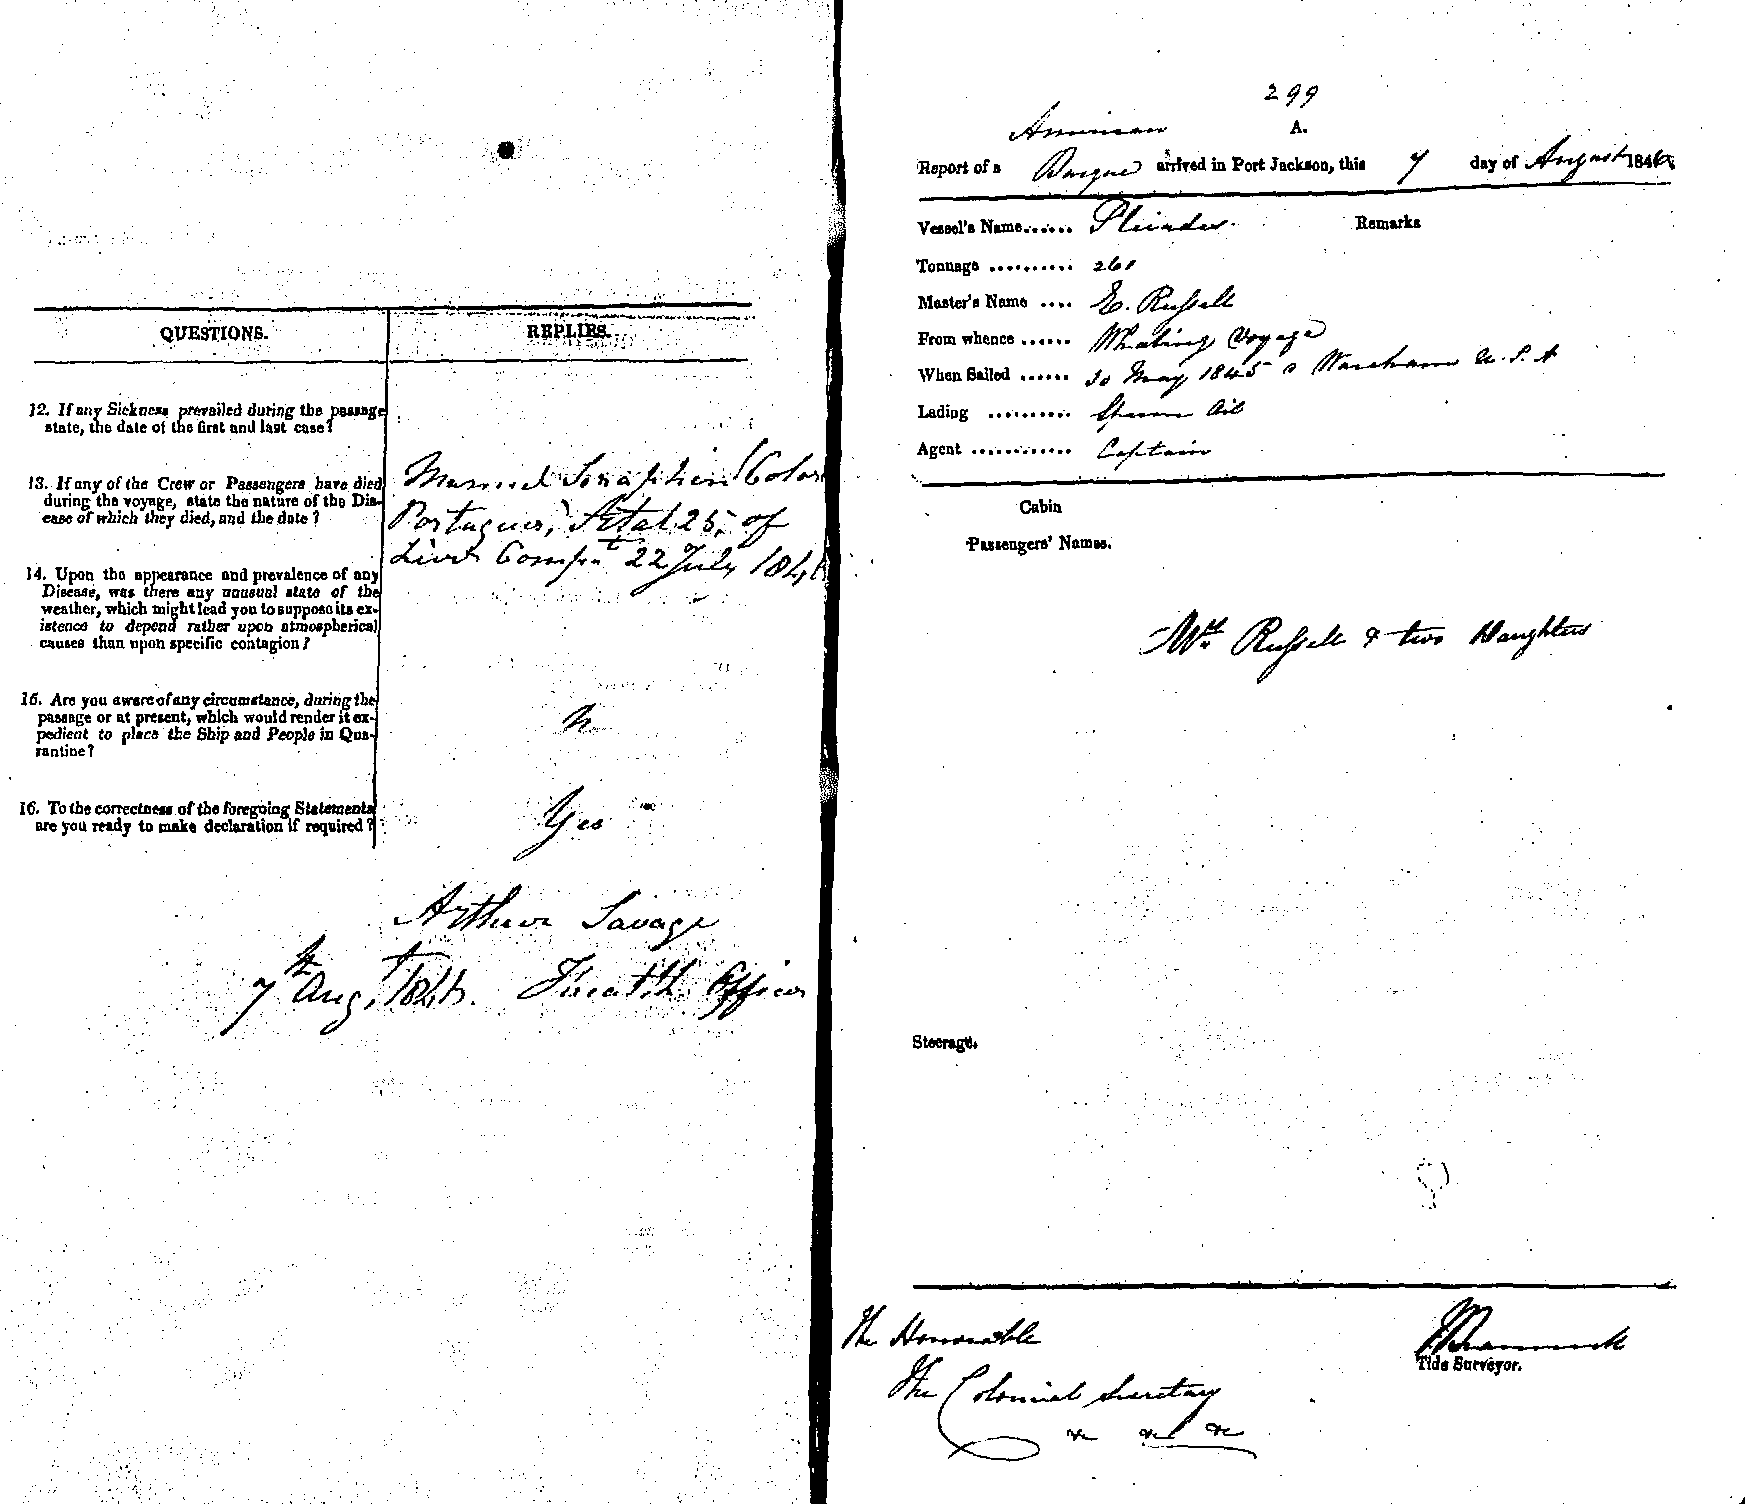 QUESTIONS.
REPLIES.
12. If any Sickness prevailed during the passage
state, the date of the first and last case?
13. If any of the Crew or Passengers have died
during the voyage, state the nature of the Dis-
ease of which they died, and the date?
Manuel Seraphin (Color
Portuguese, Ætat 25, of
Liver Compt 22 July 184
14. Upon the appearance and prevalence of any
Disease, was there any unusual state of the
weather, which might lead you to suppose its ex-
istence to depend rather upon atmospherical
causes than upon specific contagion?
15. Are you aware of any circumstance, during the
passage or at present, which would render it ex-
pedient to place the Ship and People in Qua-
rantine?
No
16. To the correctness of the foregoing Statements
are you ready to make declaration if required?
Yes
Arthur Savage
7th Augt 1846. Health Officer
299
American A.
Report of a Barque arrived in Port Jackson, this 7 day of August 1846
Vessel's Name...... Pleiades Remarks
Tonnage .......... 261
Master's Name .... E. Russell
From whence ...... Whaling Voyage
When Sailed ...... 30 May 1845 Wareham U.S.A
Lading .......... Sperm Oil
Agent ............ Captain
Cabin
Passengers' Names.
Mrs Russell & two Daughters
Steerage.
The Honorable
The Colonial Secretary
&c &c &c
Tide Surveyor.